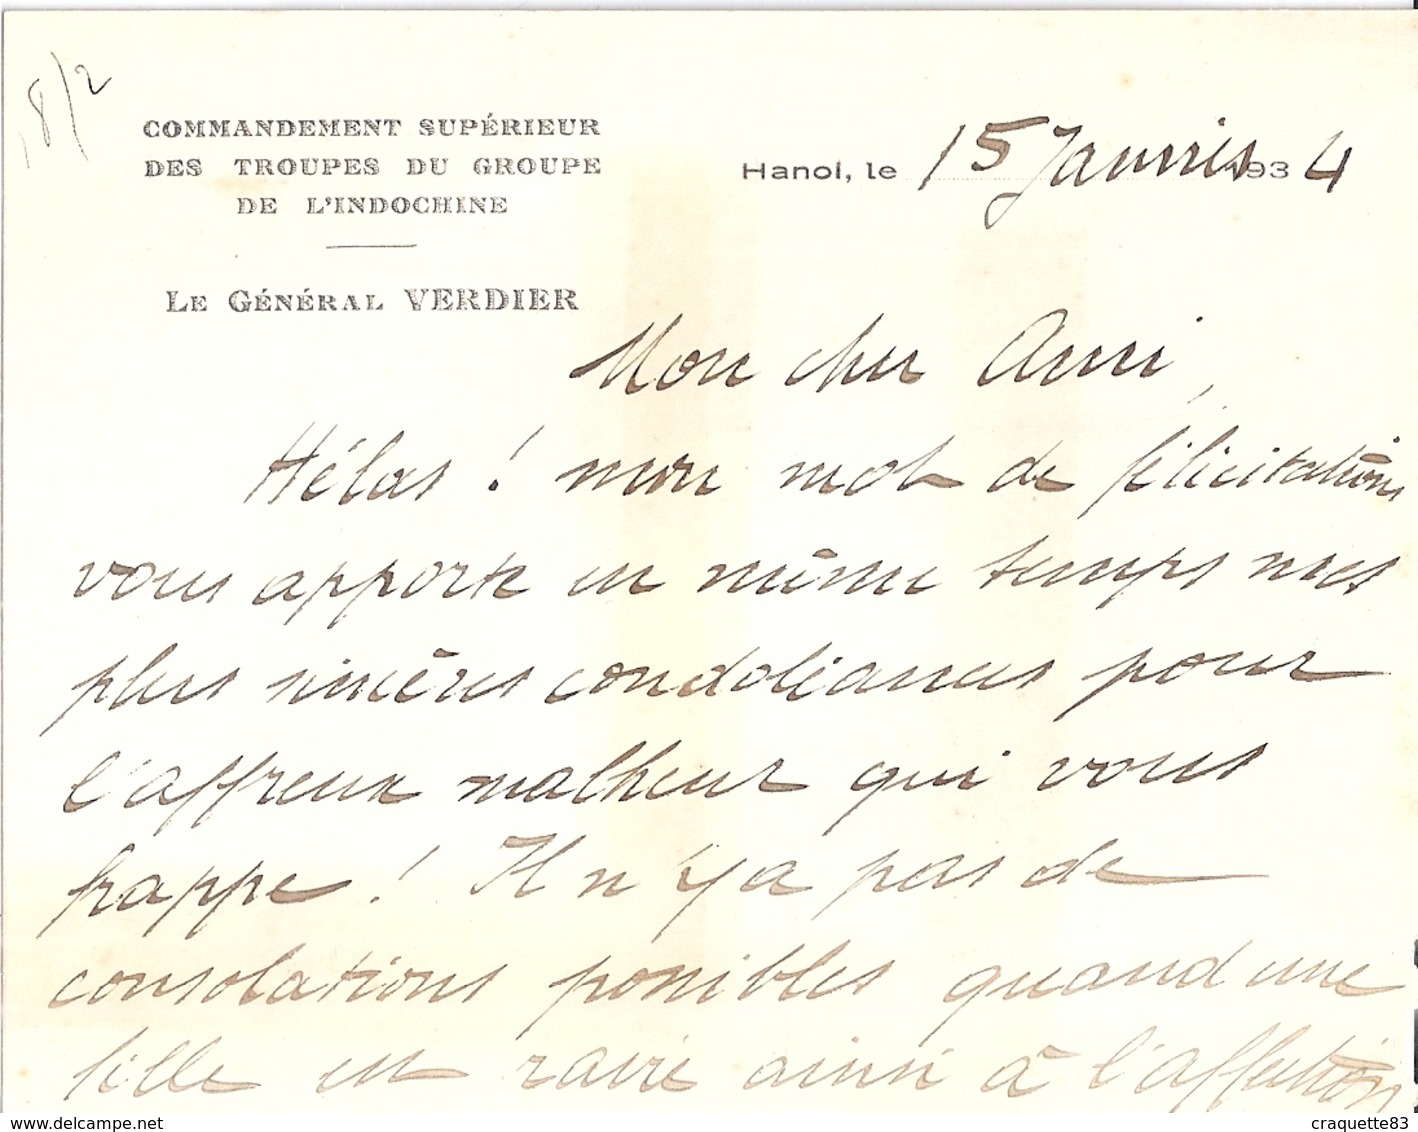 18/2
COMMANDEMENT SUPÉRIEUR
DES TROUPES DU GROUPE
DE L'INDOCHINE
LE GÉNÉRAL VERDIER
Hanoi, le 15 Janvier 1934
Mon cher Ami,
Hélas ! mon mot de félicitations
vous apporte en même temps mes
plus sincères condoléances pour
l'affreux malheur qui vous
frappe ! Il n'y a pas de
consolations possibles quand une
fille est ravie ainsi à l'affection
delcampe.net
craquette83